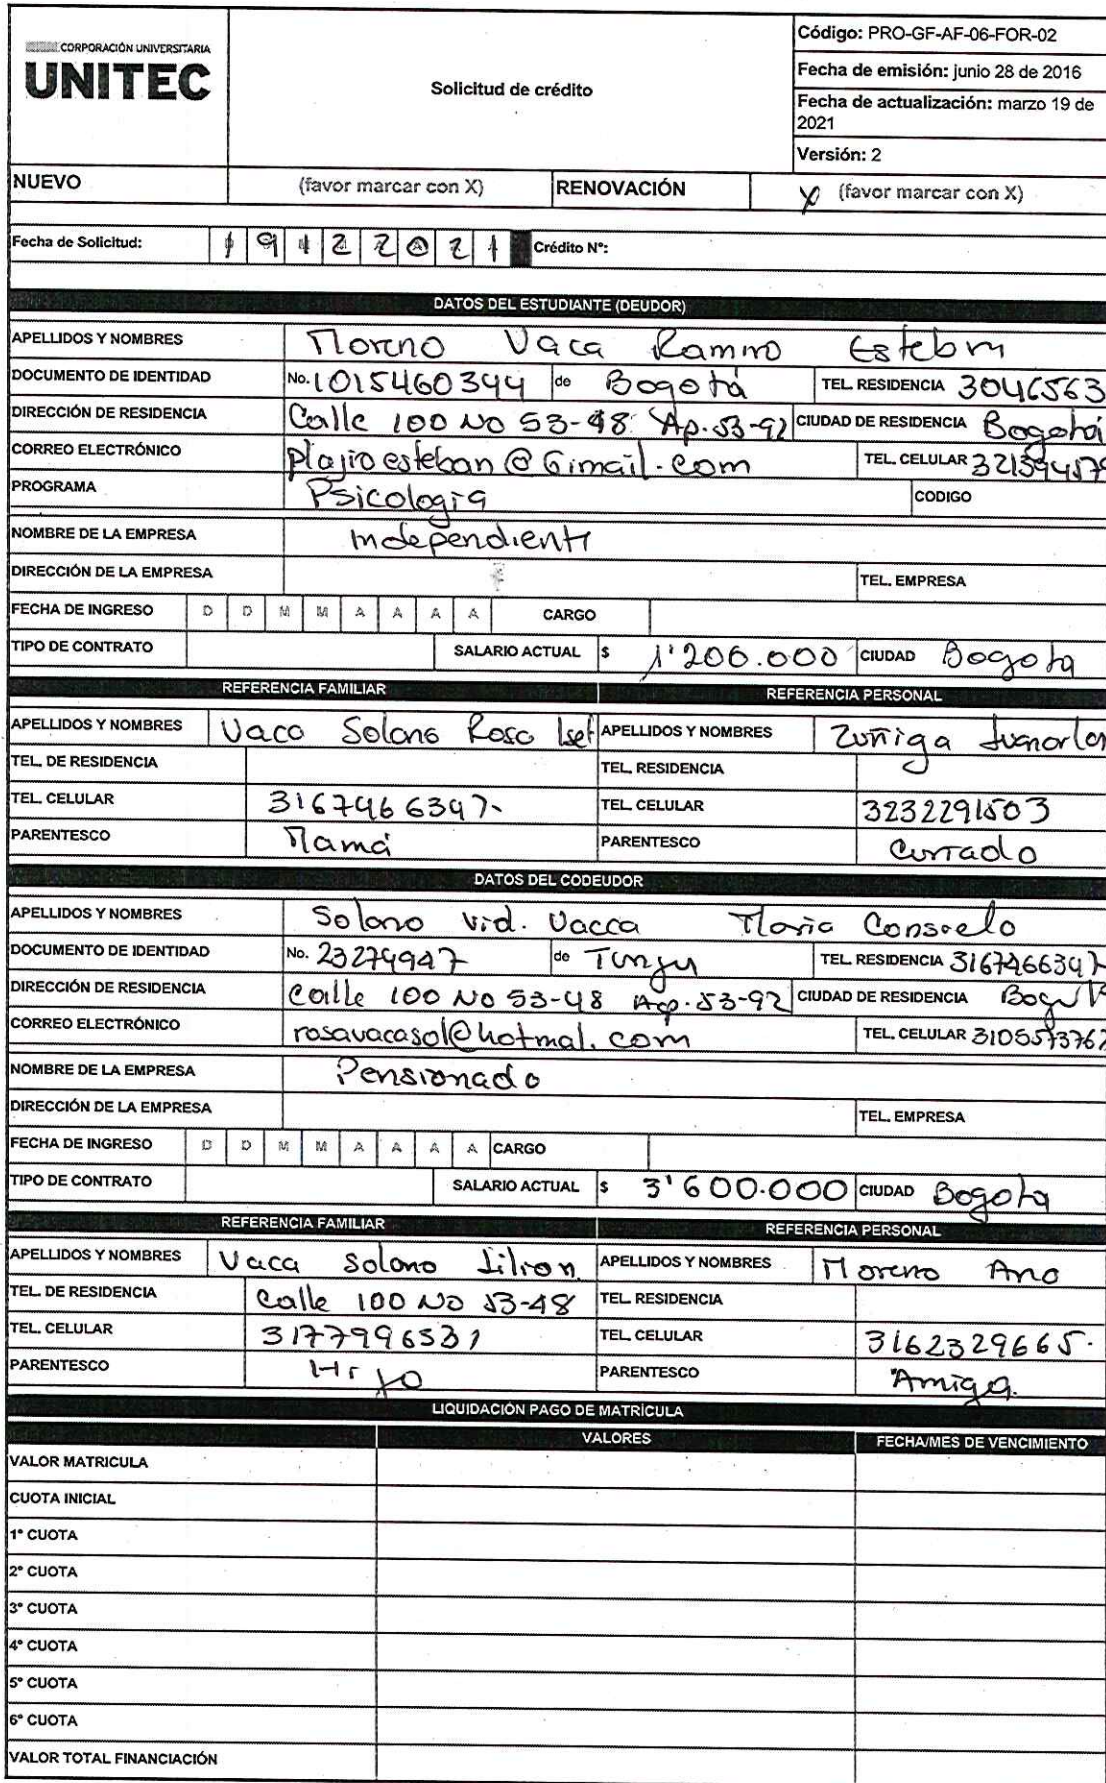 CORPORACIÓN UNIVERSITARIA
UNITEC
Solicitud de crédito
Código: PRO-GF-AF-06-FOR-02
Fecha de emisión: junio 28 de 2016
Fecha de actualización: marzo 19 de
2021
Versión: 2
NUEVO (favor marcar con X) RENOVACIÓN X (favor marcar con X)
Fecha de Solicitud: 1 9 1 2 2 0 2 1 Crédito N°:
DATOS DEL ESTUDIANTE (DEUDOR)
APELLIDOS Y NOMBRES Moreno Vaca Ramiro Esteban
DOCUMENTO DE IDENTIDAD No. 1015460344 de Bogotá TEL. RESIDENCIA 3046563
DIRECCIÓN DE RESIDENCIA Calle 100 No 53-48 Ap. 53-92 CIUDAD DE RESIDENCIA Bogotá
CORREO ELECTRÓNICO plajioesteban@Gimail.com TEL. CELULAR 321394579
PROGRAMA Psicologia CODIGO
NOMBRE DE LA EMPRESA independiente
DIRECCIÓN DE LA EMPRESA TEL. EMPRESA
FECHA DE INGRESO D D M M A A A A CARGO
TIPO DE CONTRATO SALARIO ACTUAL $ 1'200.000 CIUDAD Bogota
REFERENCIA FAMILIAR REFERENCIA PERSONAL
APELLIDOS Y NOMBRES Vaca Solano Rosa Iset APELLIDOS Y NOMBRES Zuñiga
TEL. DE RESIDENCIA TEL. RESIDENCIA
TEL. CELULAR 3167466347- TEL. CELULAR 3232291503
PARENTESCO Mamá PARENTESCO Cuñado
DATOS DEL CODEUDOR
APELLIDOS Y NOMBRES Solano Vid. Vacca Maria Consuelo
DOCUMENTO DE IDENTIDAD No. 23274947 de Tunja TEL. RESIDENCIA 3167466347
DIRECCIÓN DE RESIDENCIA Calle 100 No 53-48 Ap. 53-92 CIUDAD DE RESIDENCIA
CORREO ELECTRÓNICO rosavacasol@hotmal.com TEL. CELULAR 3105573767
NOMBRE DE LA EMPRESA Pensionado
DIRECCIÓN DE LA EMPRESA TEL. EMPRESA
FECHA DE INGRESO D D M M A A A A CARGO
TIPO DE CONTRATO SALARIO ACTUAL $ 3'600.000 CIUDAD Bogota
REFERENCIA FAMILIAR REFERENCIA PERSONAL
APELLIDOS Y NOMBRES Vaca Solano Lilian APELLIDOS Y NOMBRES Moreno Ana
TEL. DE RESIDENCIA Calle 100 No 53-48 TEL. RESIDENCIA
TEL. CELULAR 3177996531 TEL. CELULAR 3162329665.
PARENTESCO Hijo PARENTESCO Amiga.
LIQUIDACIÓN PAGO DE MATRÍCULA
VALORES FECHA/MES DE VENCIMIENTO
VALOR MATRICULA
CUOTA INICIAL
1° CUOTA
2° CUOTA
3° CUOTA
4° CUOTA
5° CUOTA
6° CUOTA
VALOR TOTAL FINANCIACIÓN